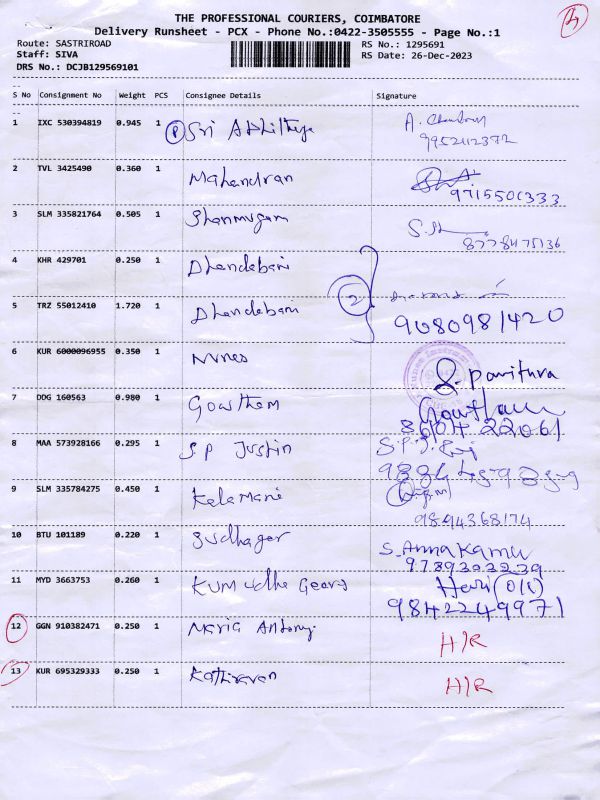 THE PROFESSIONAL COURIERS, COIMBATORE
Delivery Runsheet - PCX - Phone No.:0422-3505555 - Page No.:1
Route: SASTRIROAD RS No.: 1295691
Staff: SIVA RS Date: 26-Dec-2023
DRS No.: DCJB129569101
S No Consignment No Weight PCS Consignee Details Signature
1 IXC 530394819 0.945 1 Sri Adhithya
9952112372
2 TVL 3425490 0.360 1 Mahendran
9715501333
3 SLM 335821764 0.505 1 Shanmugam
8778475136
4 KHR 429701 0.250 1 Dhandabani
5 TRZ 55012410 1.720 1 Dhandabani 2
9080981420
6 KUR 6000096955 0.350 1
S. Pavithra
7 DOG 160563 0.980 1 Gowtham Gowtham
8604422061
8 MAA 573928166 0.295 1 S.P Justin
9 SLM 335784275 0.450 1 Kalamani
9894368174
10 BTU 101189 0.220 1 Sudhagar S. Annakamu
9789393239
11 MYD 3663753 0.260 1 Kumudha Hari (O/C)
9842249971
12 GGN 910382471 0.250 1 Maria Antony H/R
13 KUR 695329333 0.250 1 Kathiravan H/R